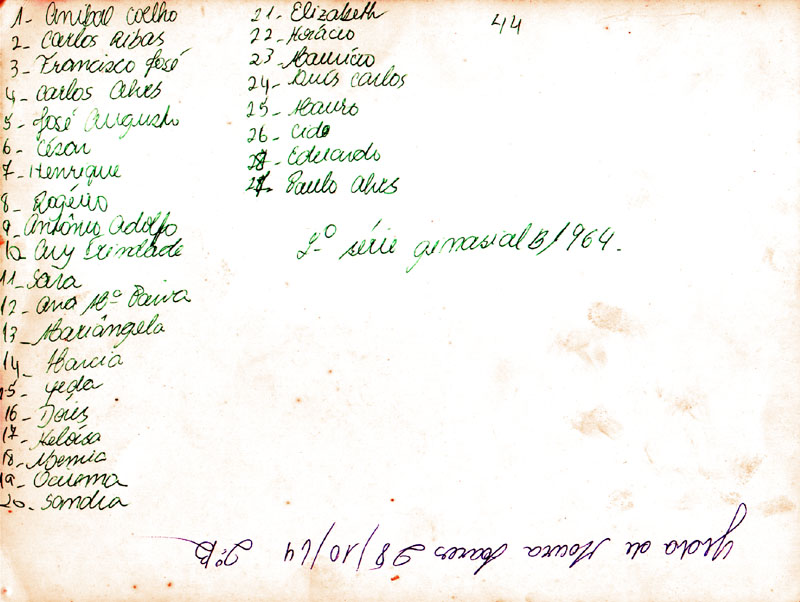 1- Anibal Coelho
2- Carlos Ribas
3- Francisco José
4- Carlos Alves
5- José Augusto
6- César
7- Henrique
8- Rogério
9- Antônio Adolfo
10- Ary Trindade
11- Sara
12- Ana Mª Paiva
13- Mariângela
14- Marcia
15- Yeda
16- Dóris
17- Heloísa
18- Noemia
19-
20- Sandra
21- Elizabeth
22- Horácio
23- Maurício
24- Luís Carlos
25- Mauro
26- Cido
28- Eduardo
27- Paulo Alves
44
2º série ginasial B/1964.
Yeda de Moura Soares 28/10/64 2º B